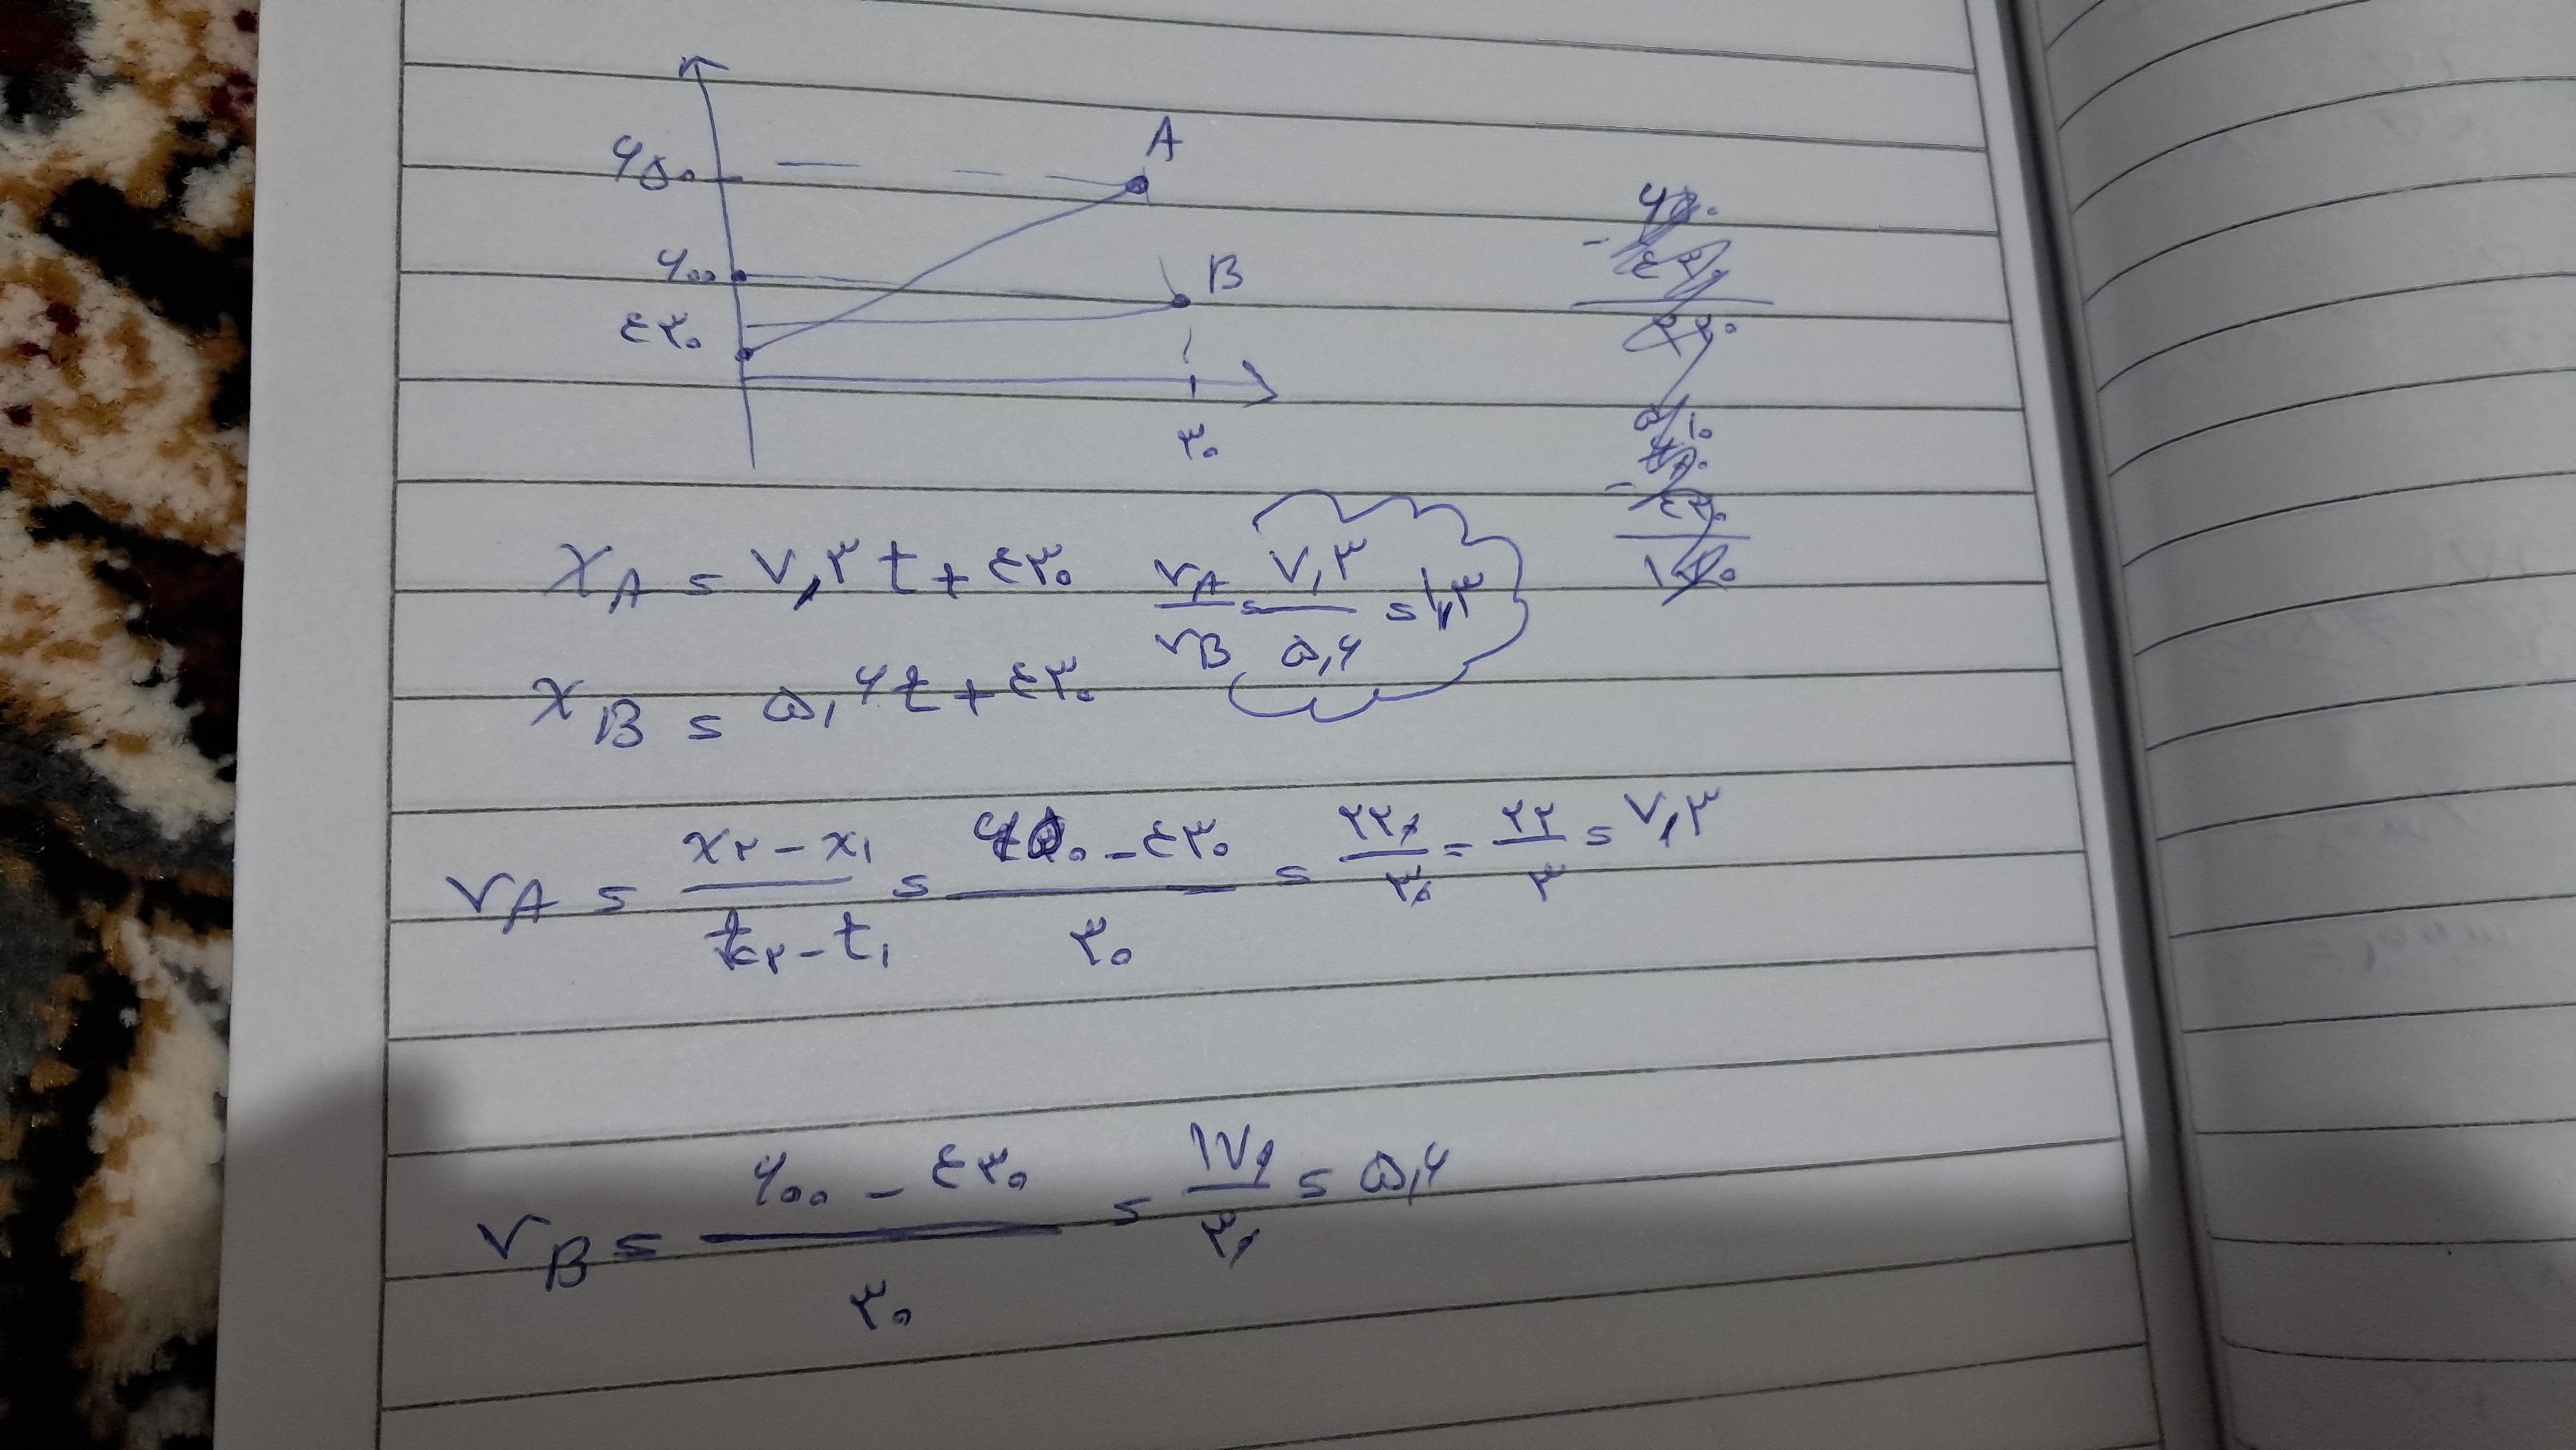 A
۶۵۰
B
۶۰۰
۴۳۰
۳۰
۶۵۰
- ۴۳۰
۲۲۰
- ۴۳۰
۱۷۰
x_A = ۷,۳ t + ۴۳۰ v_A/v_B = ۷,۳/۵,۶ = ۱,۳
x_B = ۵,۶ t + ۴۳۰
v_A = (x۲ - x۱)/(t۲ - t۱) = (۶۵۰ - ۴۳۰)/۳۰ = ۲۲۰/۳۰ = ۲۲/۳ = ۷,۳
v_B = (۶۰۰ - ۴۳۰)/۳۰ = ۱۷۰/۳۰ = ۵,۶